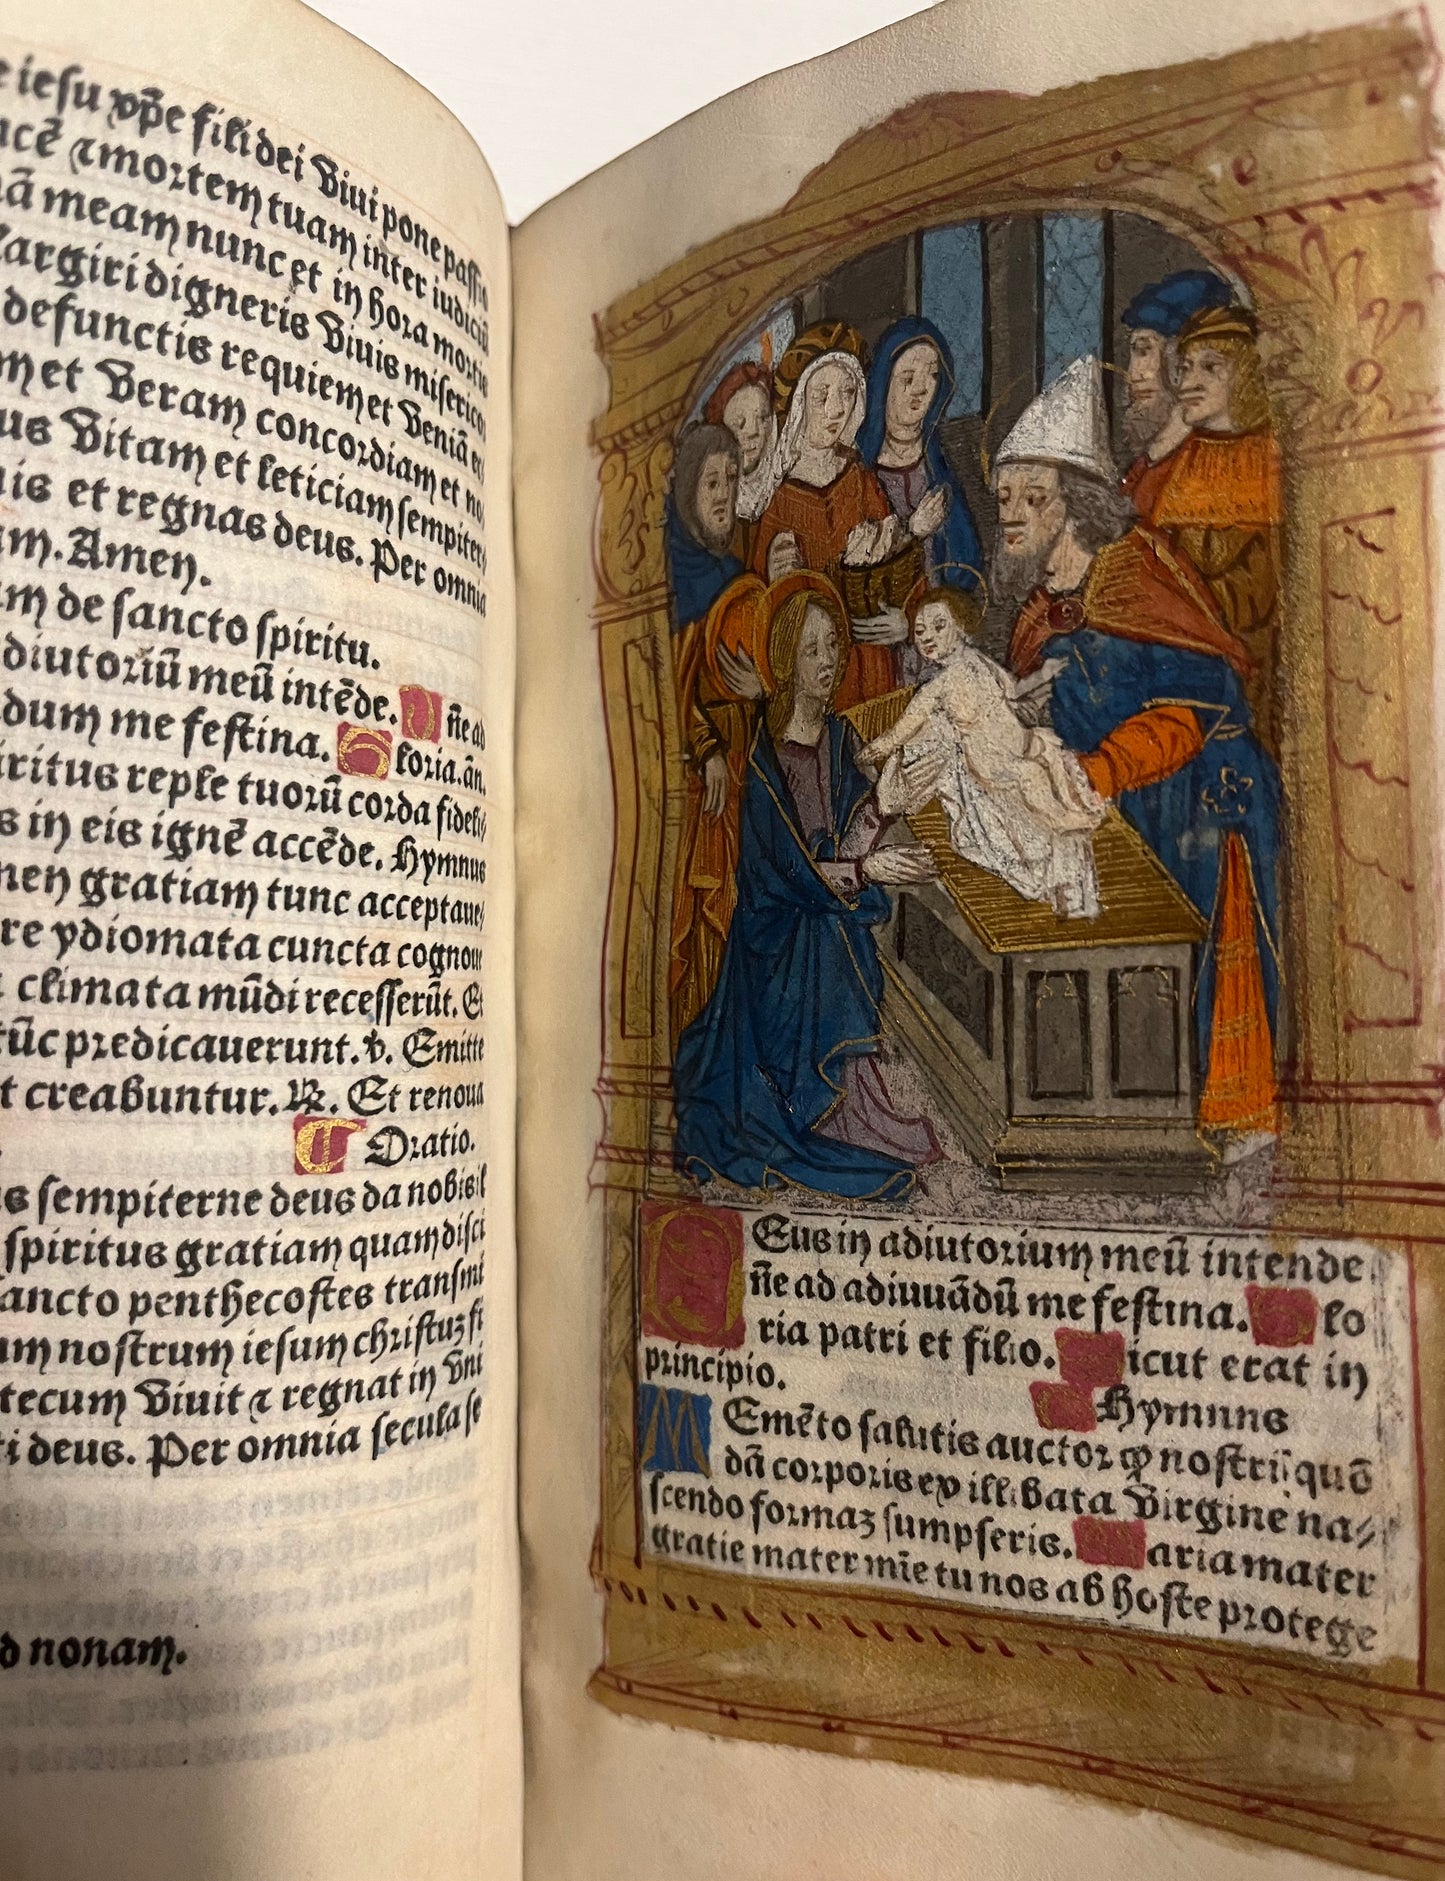 e iesu xp̄e fili dei viui pone passio
ucē ⁊ mortem tuam inter iudiciū
mā meam nunc et in hora mortis
largiri digneris viuis misericor
defunctis requiem et veniā ec
m et veram concordiam et no
us vitam et leticiam sempiter
uis et regnas deus. Per omnia
um. Amen.
um de sancto spiritu.
diutoriū meū intēde. D n̄e ad
dum me festina. G loria. an̄.
iritus reple tuorū corda fideli
s in eis ignē accēde. Hymnus
men gratiam tunc acceptaue
re ydiomata cuncta cognou
climata mūdi recesserūt. Et
tūc predicauerunt. v̄. Emitte
t creabuntur. R̄. Et renoua
C Oratio.
s sempiterne deus da nobis il
spiritus gratiam quam disci
ancto penthecostes transmi
um nostrum iesum christuꝫ fi
tecum viuit ⁊ regnat in vni
ti deus. Per omnia secula se
d nonam.
D Eus in adiutorium meū intende
n̄e ad adiuuādū me festina. G lo
ria patri et filio. S icut erat in
principio.
Hymnus
M Emēto salutis auctor ꝙ nostri quō
dā corporis ex illibata virgine na⸗
scendo formaꝫ sumpseris. M aria mater
gratie mater mīe tu nos ab hoste protege